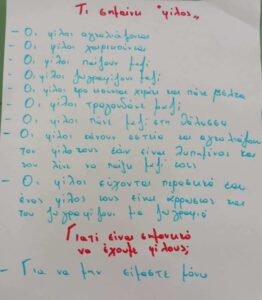 Τι σημαίνει "φίλος"
- Οι φίλοι αγκαλιάζονται
- Οι φίλοι χαιρετιούνται
- Οι φίλοι παίζουν μαζί
- Οι φίλοι ζωγραφίζουν μαζί
- Οι φίλοι κρατιούνται χέρι και πάνε βόλτα
- Οι φίλοι τραγουδάνε μαζί
- Οι φίλοι πάνε μαζί στη θάλασσα
- Οι φίλοι κάνουν και αγκαλιάζουν
τον φίλο τους εάν είναι λυπημένος και
του λένε να παίξει μαζί τους
- Οι φίλοι εύχονται περαστικά εάν
ένας φίλος τους είναι άρρωστος και
του ζωγραφίζουν μια ζωγραφιά
Γιατί είναι σημαντικό
να έχουμε φίλους;
- Για να μην είμαστε μόνοι